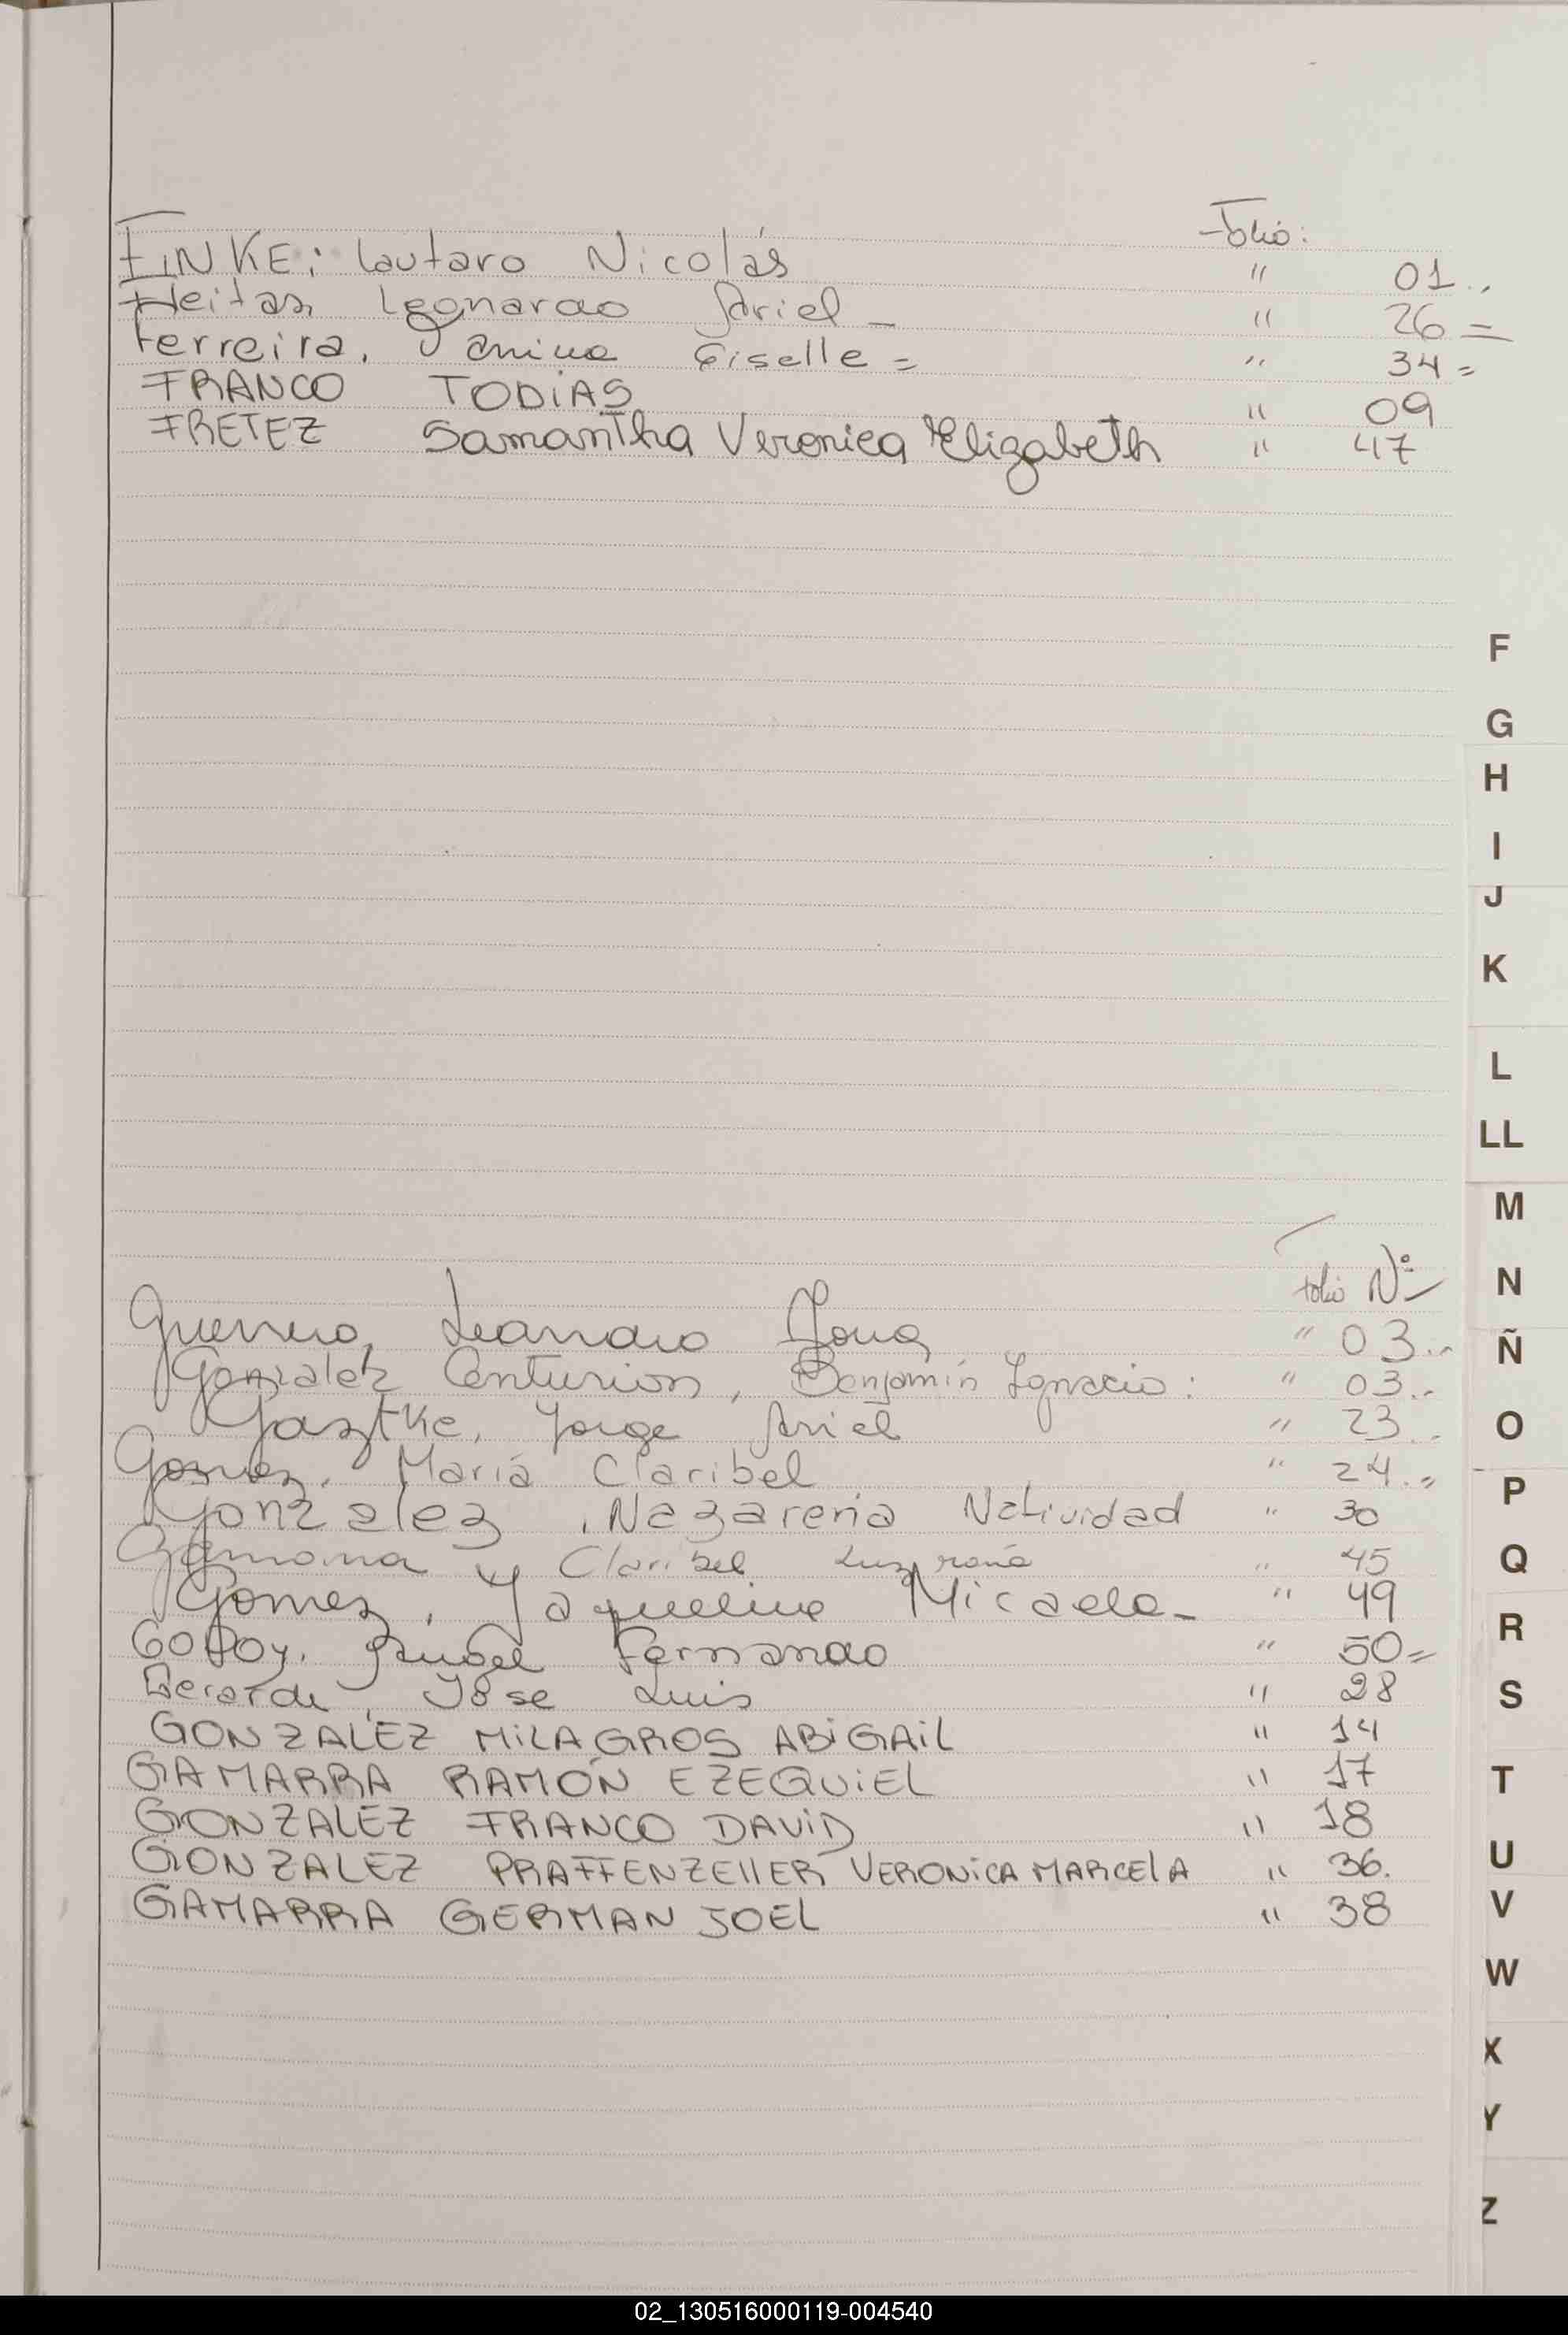 Folio:
FINKE: Lautaro Nicolás " 01..
Freitas Leonardo Ariel - " 26 =
Ferreira, Janina Giselle = " 34 =
FRANCO TOBIAS " 09
FRETEZ Samantha Veronica Elizabeth " 47
F
G
H
I
J
K
L
LL
M
N
Ñ
O
P
Q
R
S
T
U
V
W
X
Y
Z
Folio Nº
Guerrero, Leandro " 03..
Gonzalez Centurion, Benjamín Ignacio: " 03..
Gaztke, Jorge Ariel " 23..
Gomez, María Claribel " 24..
Gonzalez, Nazarena Natividad " 30
Claribel " 45
Gomez, Jaqueline Micaela - " 49
GODOY, Angel Fernando " 50 =
José Luis " 28
GONZALEZ MILAGROS ABIGAIL " 14
GAMARRA RAMÓN EZEQUIEL " 17
GONZALEZ FRANCO DAVID " 18
GONZALEZ PRAFFENZELLER VERONICA MARCELA " 36.
GAMARRA GERMAN JOEL " 38
02_130516000119-004540